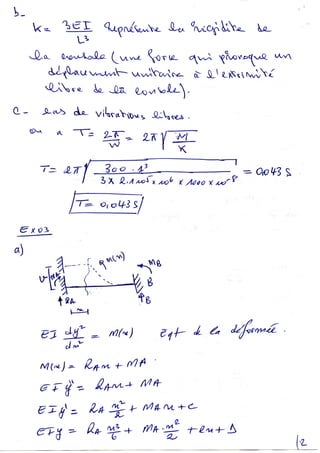 b-
K = 3EI / L3 Représente la rigidité de
la console (une force qui provoque un
déplacement unitaire à l'extrémité
libre de la console).
C- Cas de vibrations libres.
on a T = 2π/W = 2π √(M/K)
T = 2π √(300 . 1³ / (3 x 2.1 10⁵ x 10⁶ x 1000 x 10⁻⁸)) = 0,043 S
T = 0,043 S
EX03
a)
M(x)
MB
B
RA
RB
x
EI dy²/dx² = M(x) Eqt de la déformée.
M(x) = RAx + MA
EIy'' = RAx + MA
EIy' = RA x²/2 + MAx + c
EIy = RA x³/6 + MA x²/2 + cx + D
12